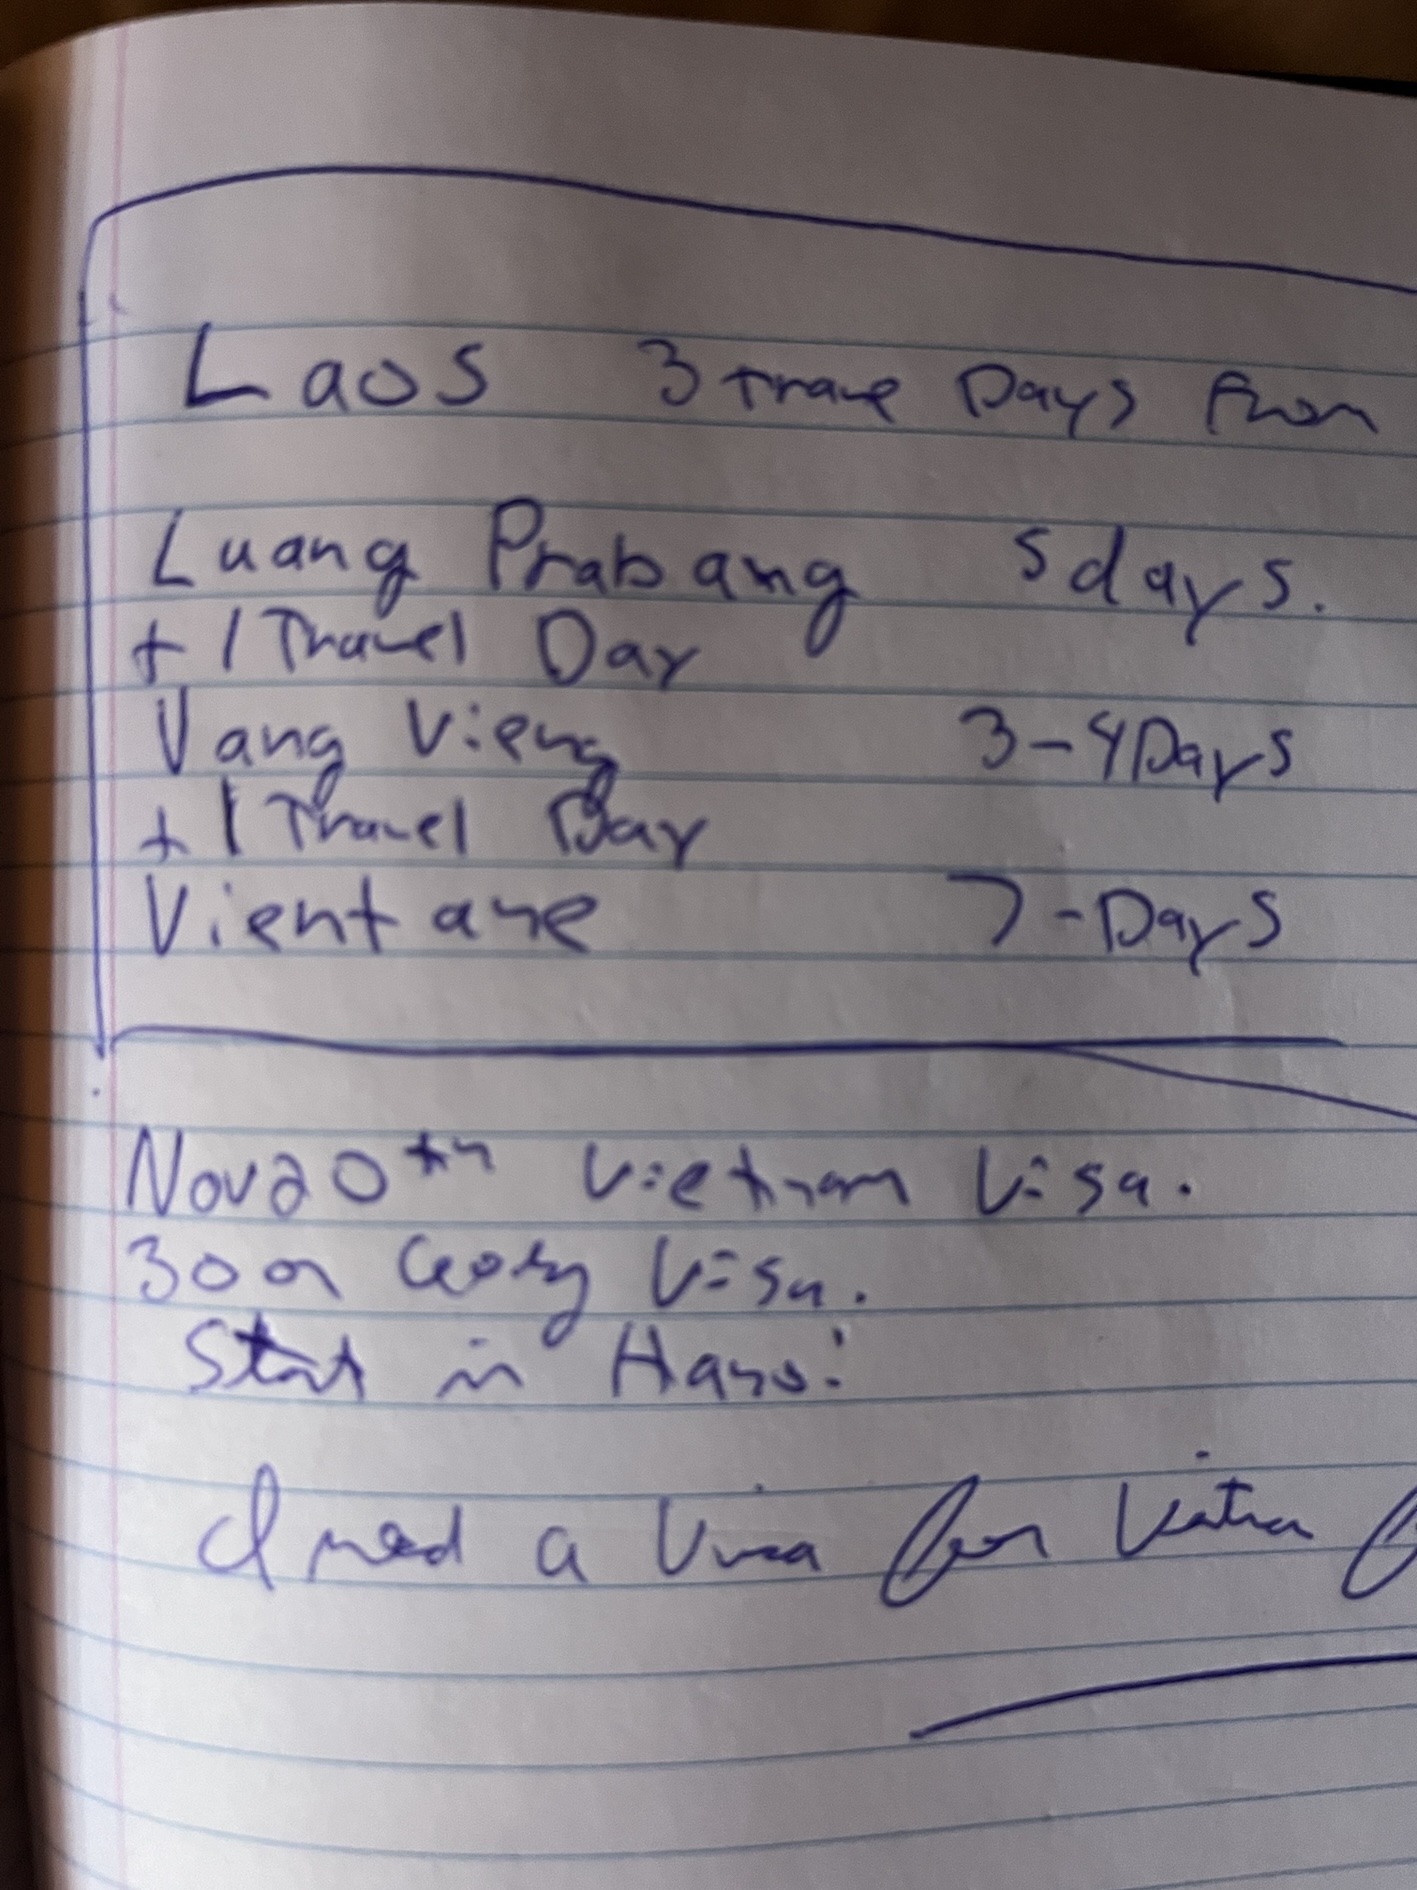 Laos 3 trave Days From
Luang Prabang 5 days.
+ 1 Travel Day
Vang Vieng 3-4 Days
+ 1 Travel Day
Vientane 7-Days
Nov 20th Vietnam Visa.
30 Visa.
Start in Hanoi
I need a Visa for